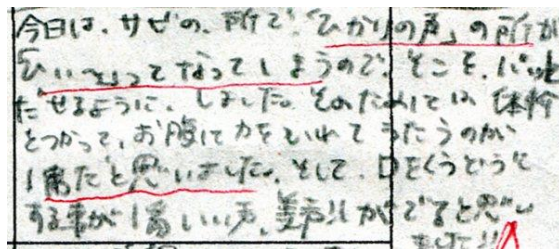 今日は、サビの、所で、「ひかりの声」の所が
「ひぃー」ってなってしまうので、そこを、パッと
だせるように、しました。そのためには、体幹
をつかって、お腹に力をいれてうたうのが
1番だと思いました。そして、口をくうというを
する事が1番いい声、美声!!がでると思い
ました!!